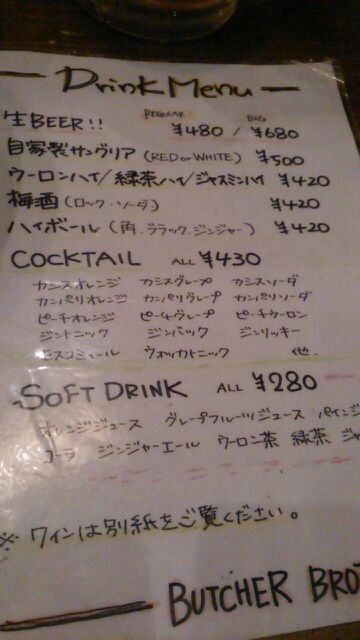 Drink Menu
REGULAR BIG
生BEER!! ¥480 / ¥680
自家製サングリア (RED or WHITE) ¥500
ウーロンハイ/緑茶ハイ/ジャスミンハイ ¥420
梅酒 (ロック・ソーダ) ¥420
ハイボール (角、ブラック、ジンジャー) ¥420
COCKTAIL ALL ¥430
カシスオレンジ カシスグレープ カシスソーダ
カンパリオレンジ カンパリグレープ カンパリソーダ
ピーチオレンジ ピーチグレープ ピーチウーロン
ジントニック ジンバック ジンリッキー
モスコミュール ウォッカトニック 他
SOFT DRINK ALL ¥280
オレンジジュース グレープフルーツジュース パイン
コーラ ジンジャーエール ウーロン茶 緑茶
※ ワインは別紙をご覧ください。
BUTCHER BRO